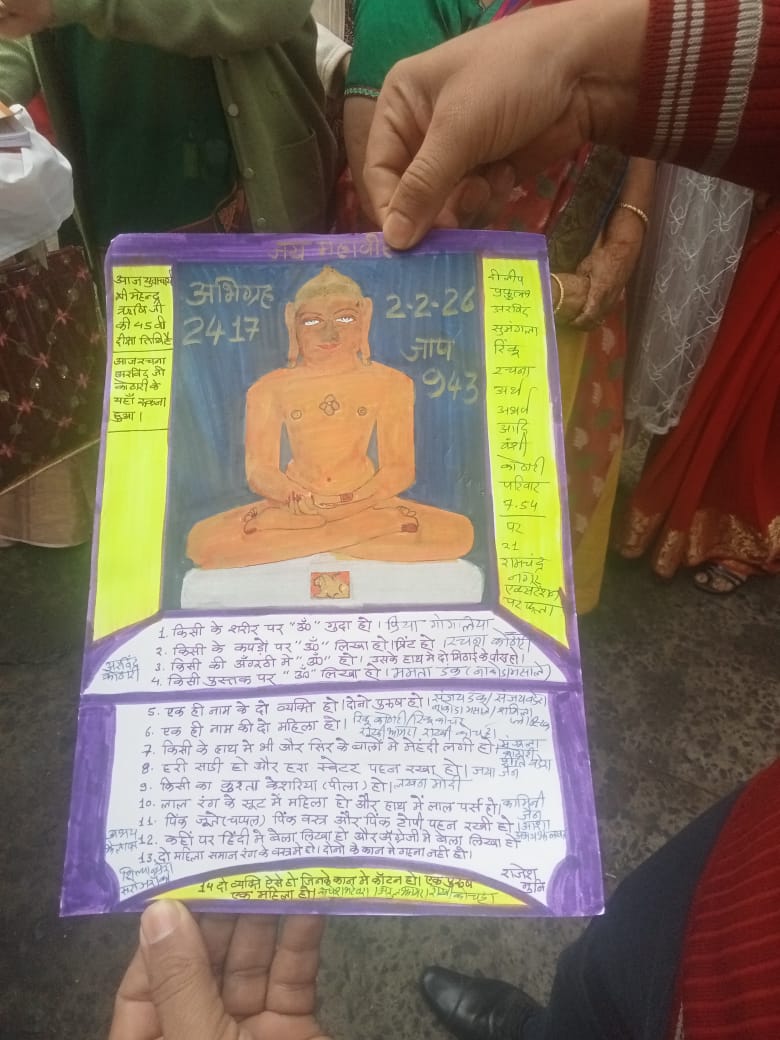 जय महावीर
आज युवाचार्य
श्री महेन्द्र
ऋषि जी
की 45 वी
दीक्षा तिथि है
आज रचना
अरविंद जी
कोठारी के
यहाँ
हुआ।
अभिग्रह
2417
2-2-26
जाप
943
दिलीप
प्रफुल्ल
अरविंद
सुमंगला
रिंकू
रचना
अर्थ
आदि
वंशी
कोठारी
परिवार
7.54
पर
21
रामचंद्र
नगर
एक्सटेंशन
पर फला
1. किसी के शरीर पर "ॐ" गुदा हो। प्रिया गोगालिया
2. किसी के कपड़ो पर "ॐ" लिखा हो। प्रिंट हो। कोठारी
3. किसी की अँगूठी में "ॐ" हो। उसके हाथ मे दो मिठाई के पीस हो।
4. किसी पुस्तक पर "ॐ" लिखा हो। ममता डक (नाकोडा मसाले)
अरविंद
कोठारी
5. एक ही नाम के दो व्यक्ति हो। दोनो पुरुष हो। संजय डक/ संजय
नाकोडा मसाले/
6. एक ही नाम की दो महिला हो। रिंकू कोठारी/ रिंकू कोचर
7. किसी के हाथ मे भी और सिर के बालों में मेहंदी लगी हो।
8. हरी साडी हो और हरा स्वेटर पहन रखा हो। जया जैन
9. किसी का कुरता केशरिया (पीला) हो। लखन मोदी
10. लाल रंग के सूट में महिला हो और हाथ में लाल पर्स हो। कामिनी
जैन
11. पिंक जूते (चप्पल) पिंक वस्त्र और पिंक टोपी पहन रखी हो। आशा
12. कहीं पर हिंदी में बेला लिखा हो और अंग्रेजी में बेला लिखा हो
13. दो महिला समान रंग के वस्त्र मे हो। दोनों के कान मे गहना नहीं हो।
अभय
राजेश
मुनि
14 दो व्यक्ति ऐसे हो जिनके कान मे कॉटन हो। एक पुरुष
एक महिला हो।